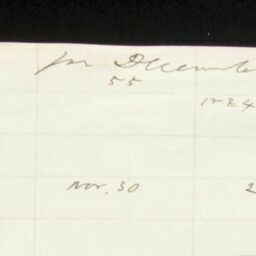 for Decembe
55
1884
Nov. 30
2